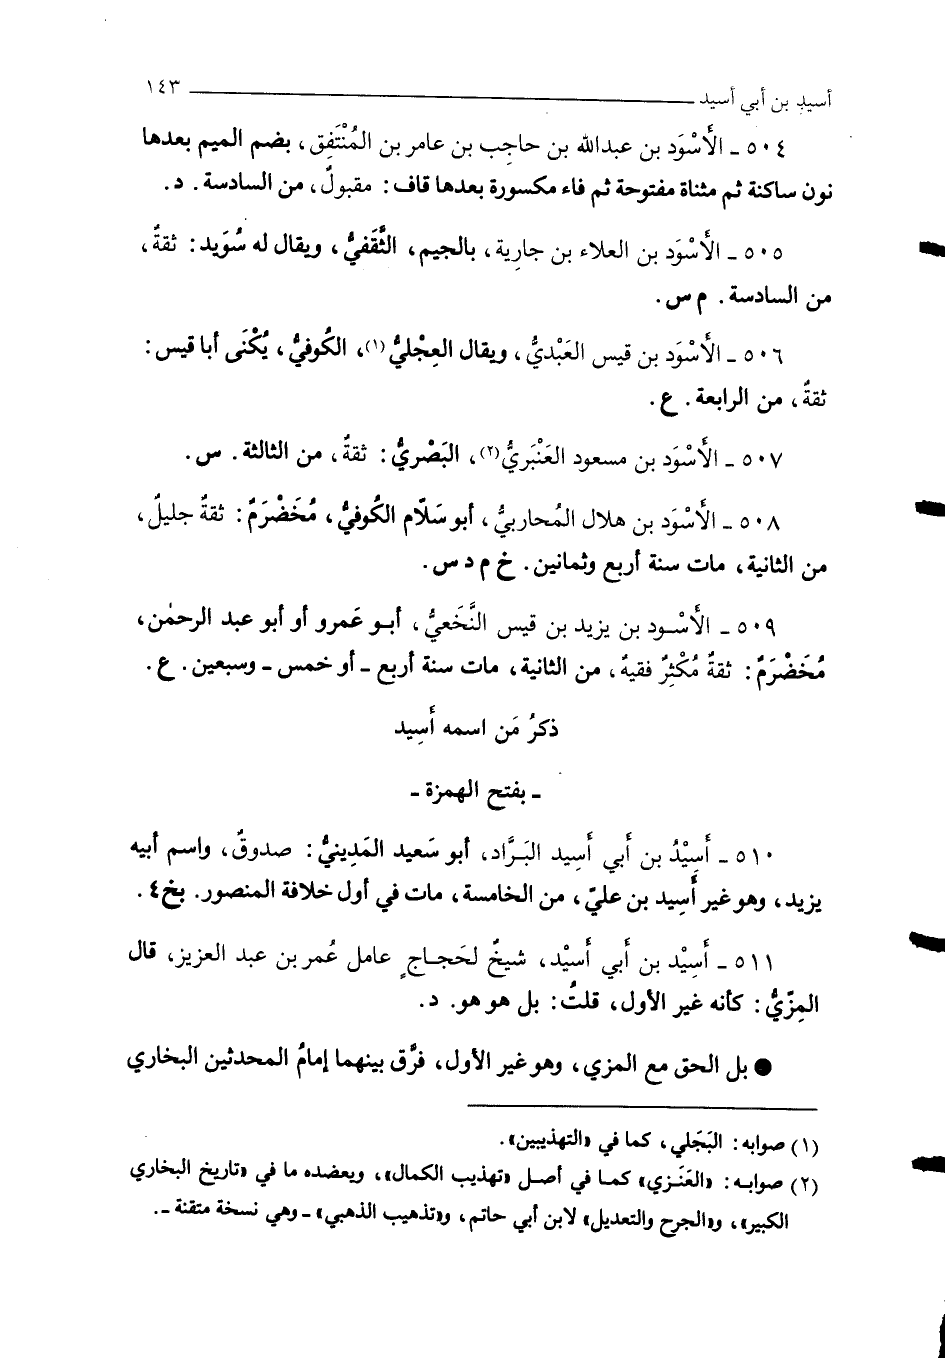 أسيد بن أبي أسيد ١٤٣
٥٠٤ ـ الأَسْوَد بن عبدالله بن حاجِب بن عامر بن المُنْتَفِق، بضم الميم بعدها
نون ساكنة ثم مثناة مفتوحة ثم فاء مكسورة بعدها قاف: مقبولٌ، من السادسة. د.
٥٠٥ ـ الأَسْوَد بن العلاء بن جارِية، بالجيم، الثَّقَفيُّ، ويقال له سُوَيد: ثقةٌ،
من السادسة. م س.
٥٠٦ ـ الأَسْوَد بن قيس العَبْديُّ، ويقال العِجْليُّ(١)، الكُوفيُّ، يُكْنَى أبا قيس:
ثقةٌ، من الرابعة. ع.
٥٠٧ ـ الأَسْوَد بن مسعود العَنْبَريُّ(٢)، البَصْريُّ: ثقةٌ، من الثالثة. س.
٥٠٨ ـ الأَسْوَد بن هلال المُحاربيُّ، أبو سَلاّم الكُوفيُّ، مُخَضْرَمٌ: ثقةٌ جليلٌ،
من الثانية، مات سنة أربع وثمانين. خ م د س.
٥٠٩ ـ الأَسْود بن يزيد بن قيس النَّخَعيُّ، أبو عَمرو أو أبو عبد الرحمٰن،
مُخَضْرَمٌ: ثقةٌ مُكْثِرٌ فقيهٌ، من الثانية، مات سنة أربع ـ أو خمس ـ وسبعين. ع.
ذكرُ مَن اسمه أَسِيد
ـ بفتح الهمزة ـ
٥١٠ ـ أَسِيْدُ بن أبي أَسِيد البَرَّاد، أبو سَعيد المَدِينيُّ: صدوقٌ، واسم أبيه
يزيد، وهو غير أَسِيد بن عليّ، من الخامسة، مات في أول خلافة المنصور. بخ ٤.
٥١١ ـ أَسِيْد بن أبي أَسِيْد، شيخٌ لحَجاجٍ عامل عُمر بن عبد العزيز، قال
المِزّيُّ: كأنه غير الأول، قلتُ: بل هو هو. د.
● بل الحق مع المزي، وهو غير الأول، فرَّق بينهما إمامُ المحدثين البخاري
(١) صوابه: البَجَلي، كما في «التهذيبين».
(٢) صوابه: «العَنَزي» كما في أصل «تهذيب الكمال»، ويعضده ما في «تاريخ البخاري
الكبير»، و«الجرح والتعديل» لابن أبي حاتم، و«تذهيب الذهبي» ـ وهي نسخة متقنة ـ.